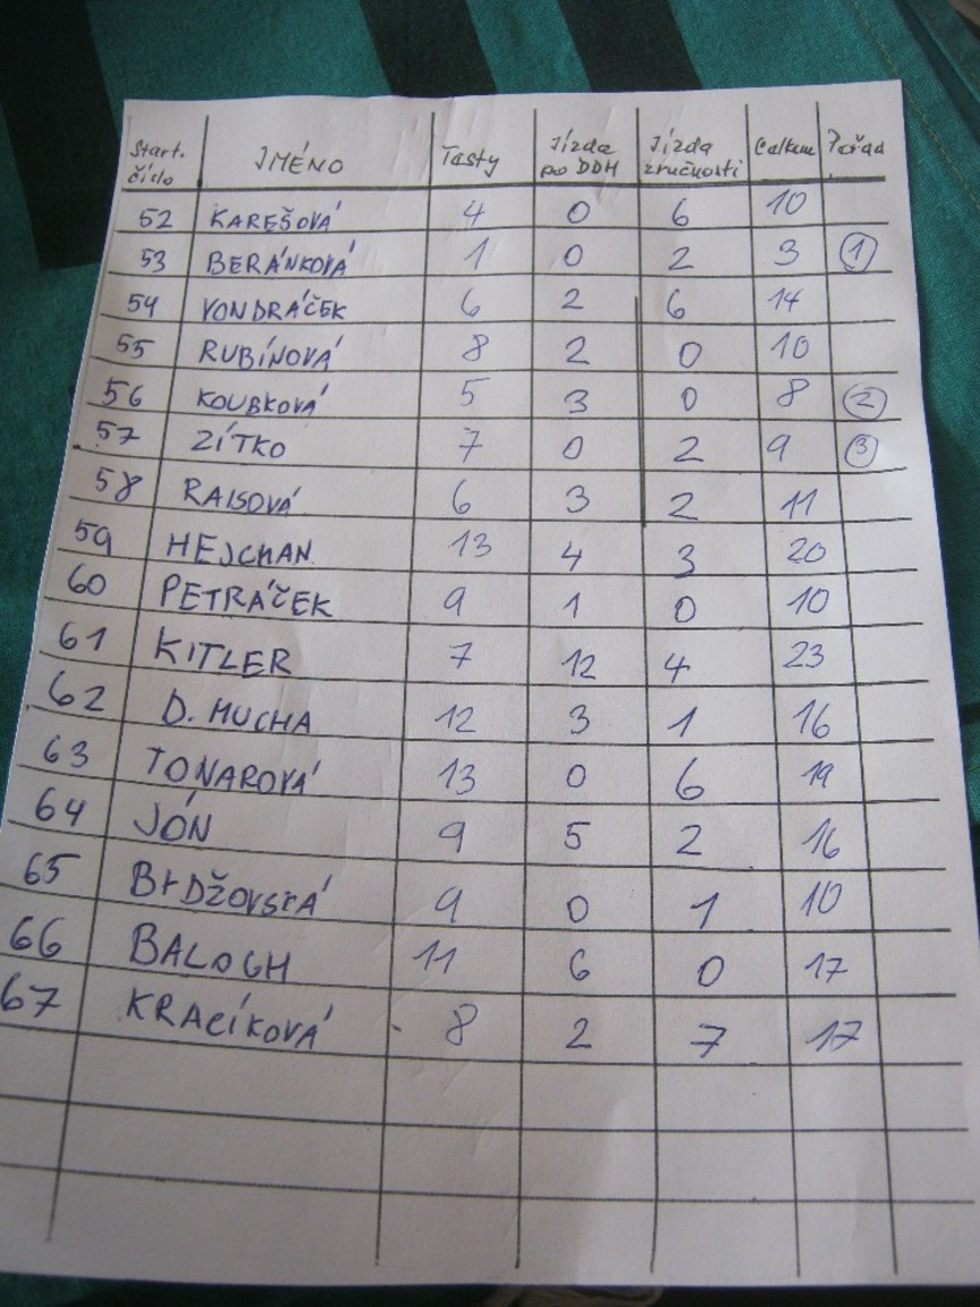 Start. číslo JMÉNO Testy Jízda po DDH Jízda zručnosti Celkem Pořad
52 KAREŠOVÁ 4 0 6 10
53 BERÁNKOVÁ 1 0 2 3 1
54 VONDRÁČEK 6 2 6 14
55 RUBÍNOVÁ 8 2 0 10
56 KOUBKOVÁ 5 3 0 8 2
57 ZÍTKO 7 0 2 9 3
58 RAISOVÁ 6 3 2 11
59 HEJCHAN 13 4 3 20
60 PETRÁČEK 9 1 0 10
61 KITLER 7 12 4 23
62 D. MUCHA 12 3 1 16
63 TONAROVÁ 13 0 6 19
64 JÓN 9 5 2 16
65 9 0 1 10
66 BALOGH 11 6 0 17
67 KRACÍKOVÁ 8 2 7 17